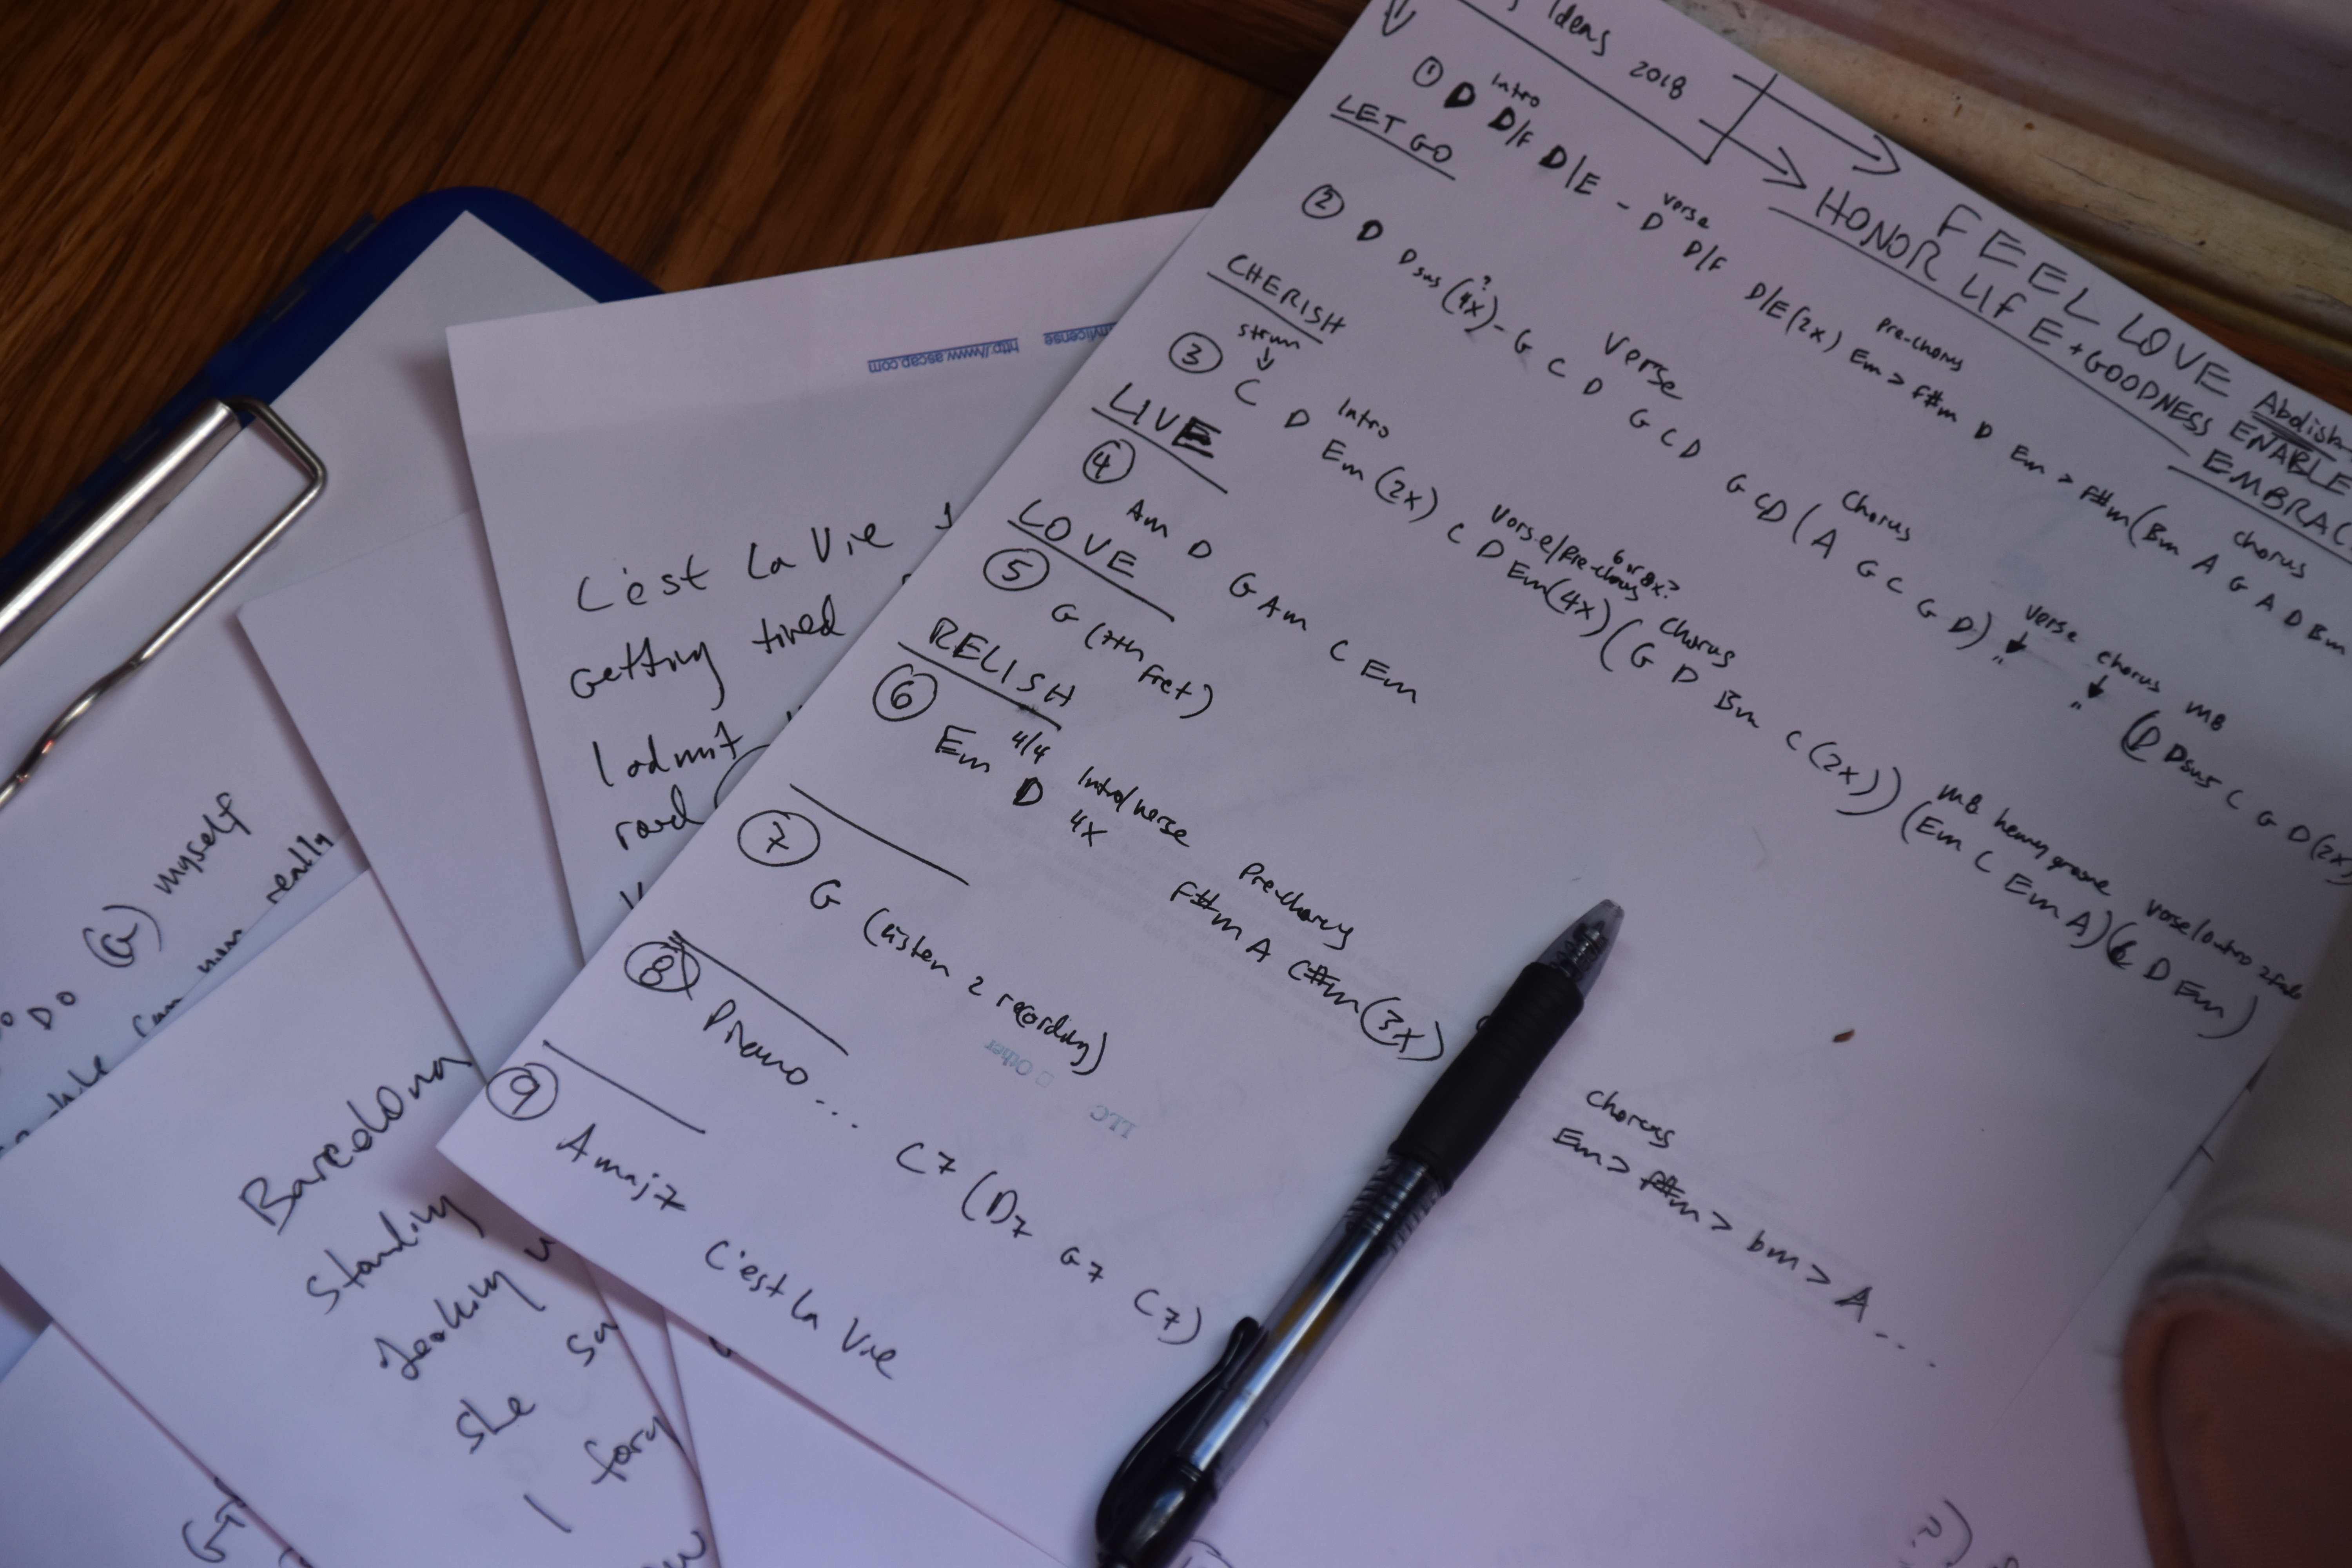 Ideas 2018
FEEL LOVE
HONOR LIFE + GOODNESS ENABLE
EMBRAC
Intro verse Pre-chorus chorus
① D D/F D/E - D D/F D/E (2x) Em > F#m D Em > F#m (Bm A G A D Bm
LET GO
Verse Chorus verse chorus MB
② D Dsus (4x?) - G C D G C D G C D (A G C G D) " " (D Dsus C G D (2x)
CHERISH
strum Intro Verse/Pre-chorus 6 or 8x? Chorus MB heavy groove verse/outro
③ C D Em (2x) C D Em (4x) (G D Bm C (2x)) (Em C Em A) ( D Em)
LIVE
④ Am D G Am C Em
LOVE
⑤ G (7th Fret)
RELISH
4/4 Intro/verse Pre-chorus chorus
⑥ Em D 4x F#m A C#m (3x) Em > F#m > bm > A ...
⑦ G (listen 2 recording)
⑧ Piano ... C7 (D7 G7 C7)
⑨ Amaj7 C'est La Vie
Other
LLC
http://www.ascap.com
C'est La Vie
Getting tired
I admit
road
DO (a) myself
really
Barcelona
Standing
She
I